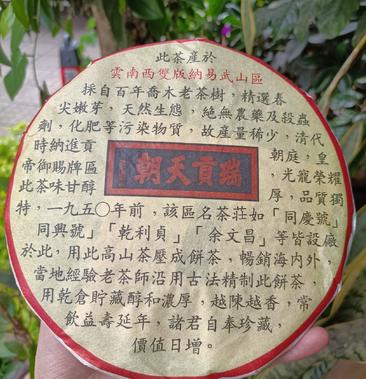 此茶產於
雲南西雙版納易武山區
採自百年喬木老茶樹，精選春
尖嫩芽，天然生態，絕無農藥及殺蟲
劑，化肥等污染物質，故產量稀少，清代
時納進貢 朝庭，皇
帝御賜牌區 瑞貢天朝 ，光龍榮耀
此茶味甘醇 厚，品質獨
特，一九五〇年前，該區名茶莊如「同慶號」
同興號」「乾利貞」「余文昌」等皆設廠
於此，用此高山茶壓成餅茶，暢銷海內外，
當地經驗老茶師沿用古法精制此餅茶，
用乾倉貯藏醇和濃厚，越陳越香，常
飲益壽延年，諸君自奉珍藏，
價值日增。